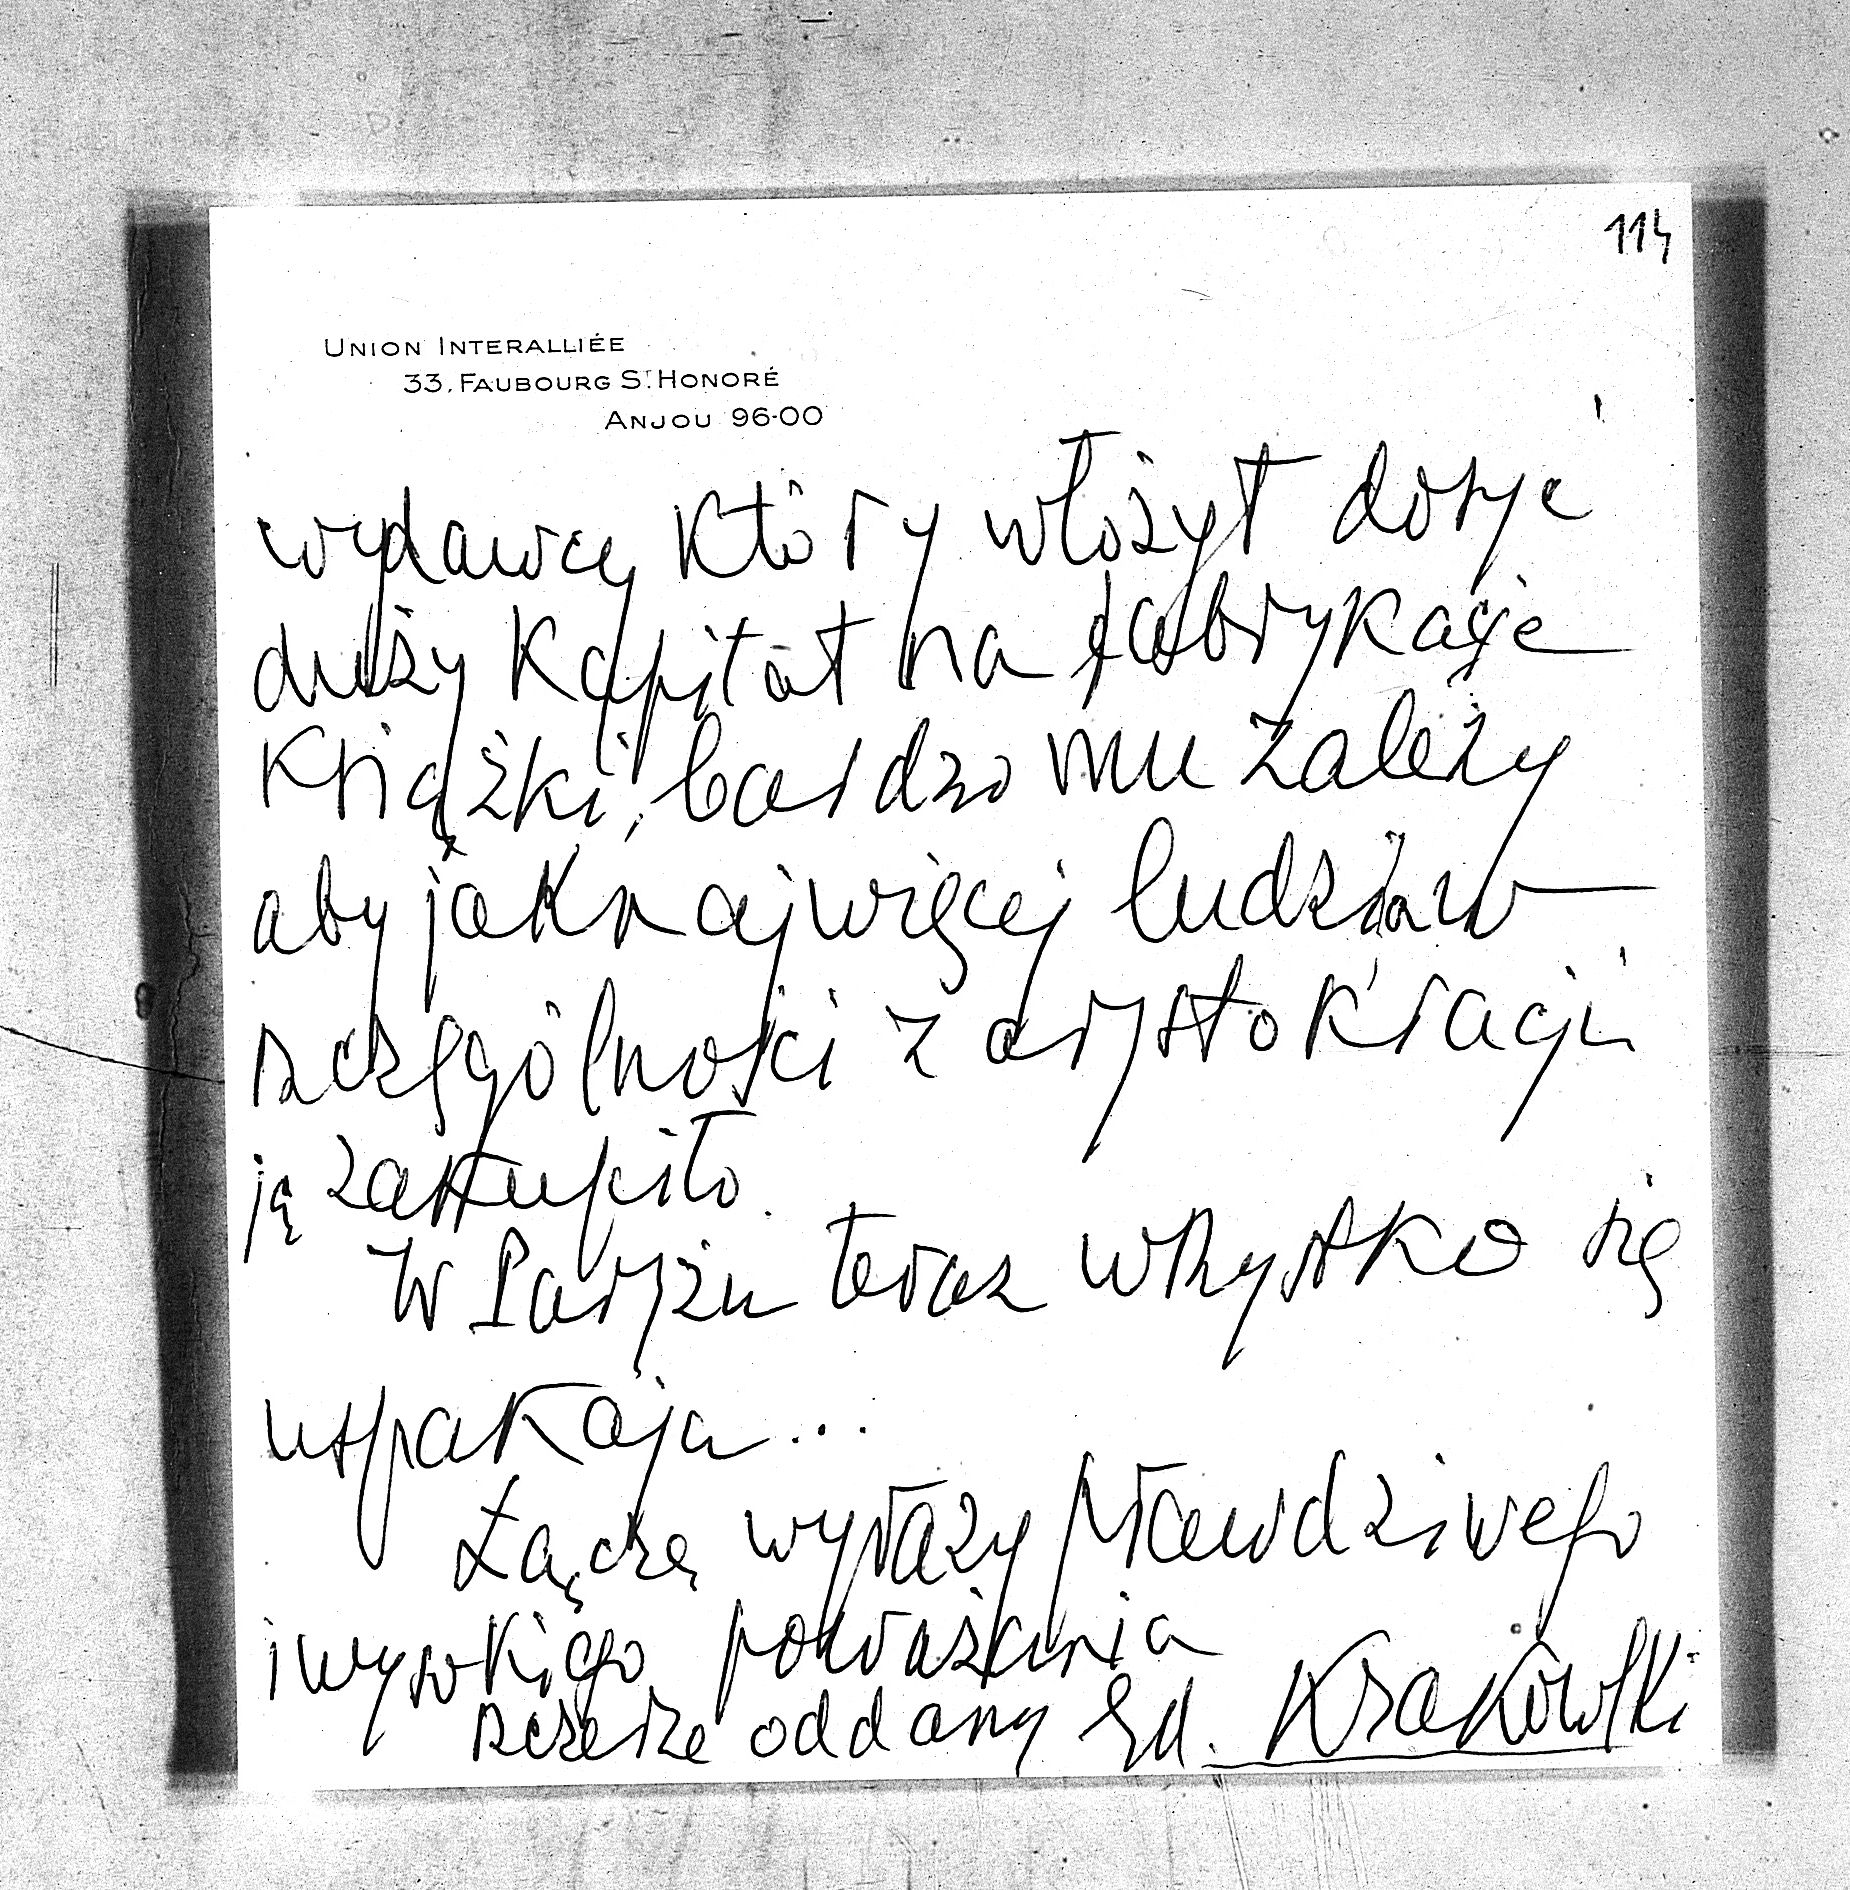 114
UNION INTERALLIÉE
33, FAUBOURG ST HONORÉ
ANJOU 96-00
wydawcy który włożył dosyć
duży kapitał na fabrykację
książki, bardzo mu zależy
aby jaknajwięcej ludzi w
szczególności z arystokracji
ją zakupiło.
W Paryżu teraz wszystko się
uspakaja...
Łączę wyrazy prawdziwego
i wysokiego poważania
szczerze oddany Ed. Krakowski